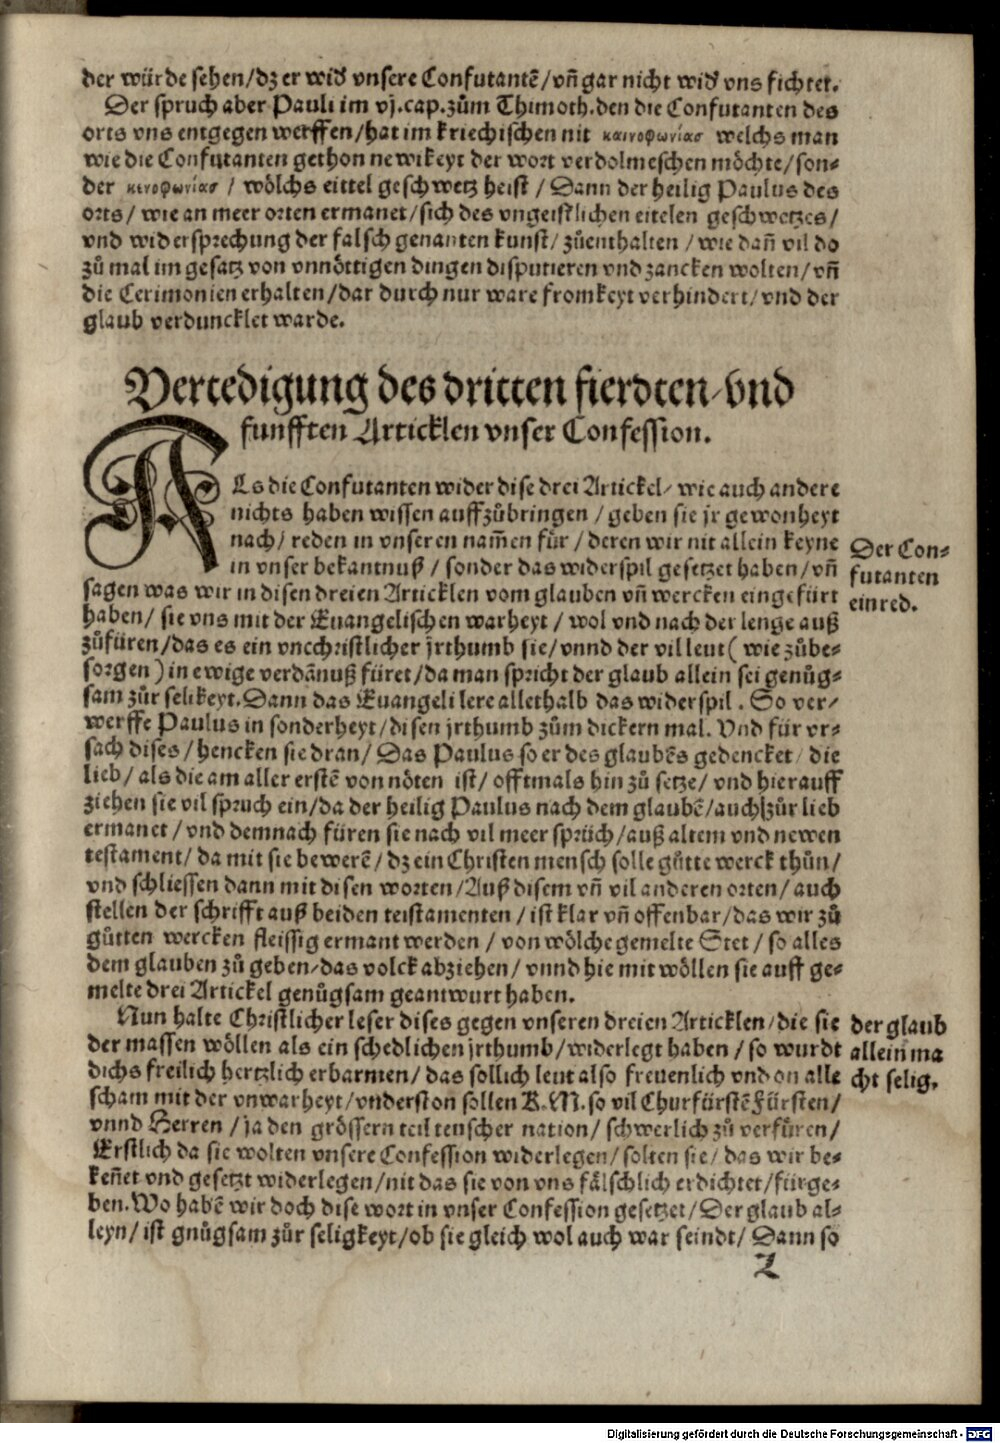 der würde sehen/dz er wid᷎ vnsere Confutantē/vñ gar nicht wid᷎ vns fichtet.
Der spruch aber Pauli im vj.cap.zům Thimoth.den die Confutanten des
orts vns entgegen werffen/hat im kriechischen nit καινοφωνίας welchs man
wie die Confutanten gethon newikeyt der wort verdolmeschen möchte/son⸗
der κενοφωνίας / wölchs eittel geschwetz heist / Dann der heilig Paulus des
orts / wie an meer orten ermanet/sich des vngeistlichen eitelen geschwetzes/
vnd widersprechung der falsch genanten kunst/ zůenthalten / wie dañ vil do
zů mal im gesatz von vnnöttigen dingen disputieren vnd zancken wolten/vñ
die Cerimonien erhalten/dar durch nur ware fromkeyt verhindert/vnd der
glaub verduncklet warde.
Vertedigung des dritten fierdten/vnd
funfften Articklen vnser Confession.
ALs die Confutanten wider dise drei Artickel/ wie auch andere
nichts haben wissen auffzůbringen / geben sie jr gewonheyt
nach/ reden in vnseren nam̃en für / deren wir nit allein keyne
in vnser bekantnuß / sonder das widerspil gesetzet haben/vñ
Der Con⸗
futanten
einred.
sagen was wir in disen dreien Articklen vom glauben vñ wercken eingefürt
haben/ sie vns mit der Euangelischen warheyt / wol vnd nach der lenge auß
zůfüren/das es ein vncchristlicher jrthumb sie/vnnd der vil leut( wie zůbe⸗
sorgen ) in ewige verdãnuß füret/da man spricht der glaub allein sei genůg⸗
sam zůr selikeyt. Dann das Euangeli lere allethalb das widerspil . So ver/
werffe Paulus in sonderheyt/disen jrthumb zům dickern mal. Vnd für vr⸗
sach dises/hencken sie dran/ Das Paulus so er des glaubēs gedencket/ die
lieb/ als die am aller erstē von nöten ist/ offtmals hin zů setze/ vnd hierauff
ziehen sie vil spruch ein/da der heilig Paulus nach dem glaubē/auch zůr lieb
ermanet / vnd demnach füren sie nach vil meer sprüch/auß altem vnd newen
testament/ da mit sie bewerē / dz ein Christen mensch solle gůtte werck thůn/
vnd schliessen dann mit disen worten/Auß disem vñ vil anderen orten/ auch
stellen der schrifft auß beiden teistamenten / ist klar vñ offenbar/das wir zů
gůtten wercken fleissig ermant werden / von wölche gemelte Stet / so alles
dem glauben zů geben/das volck abziehen/ vnnd hie mit wöllen sie auff ge⸗
melte drei Artickel genůgsam geantwurt haben.
Nun halte Christlicher leser dises gegen vnseren dreien Articklen/die sie
der massen wöllen als ein schedlichen jrthumb/widerlegt haben / so wurdt
dichs freilich hertzlich erbarmen/ das sollich leut also freuenlich vnd on alle
der glaub
allein ma
cht selig,
scham mit der vnwarheyt/vnderston sollen K.M.so vil Churfürstē Fürsten/
vnnd Herren / ja den grössern teil teutscher nation/ schwerlich zů verfüren/
Erstlich da sie wolten vnsere Confession widerlegen/ solten sie/ das wir be⸗
keñet vnd gesetzt widerlegen/nit das sie von vns fälschlich erdichtet/fürge⸗
ben. Wo habē wir doch dise wort in vnser Confession gesetzet/ Der glaub al⸗
leyn/ ist gnůgsam zůr seligkeyt/ob sie gleich wol auch war seindt/ Dann so
Z
Digitalisierung gefördert durch die Deutsche Forschungsgemeinschaft - DFG